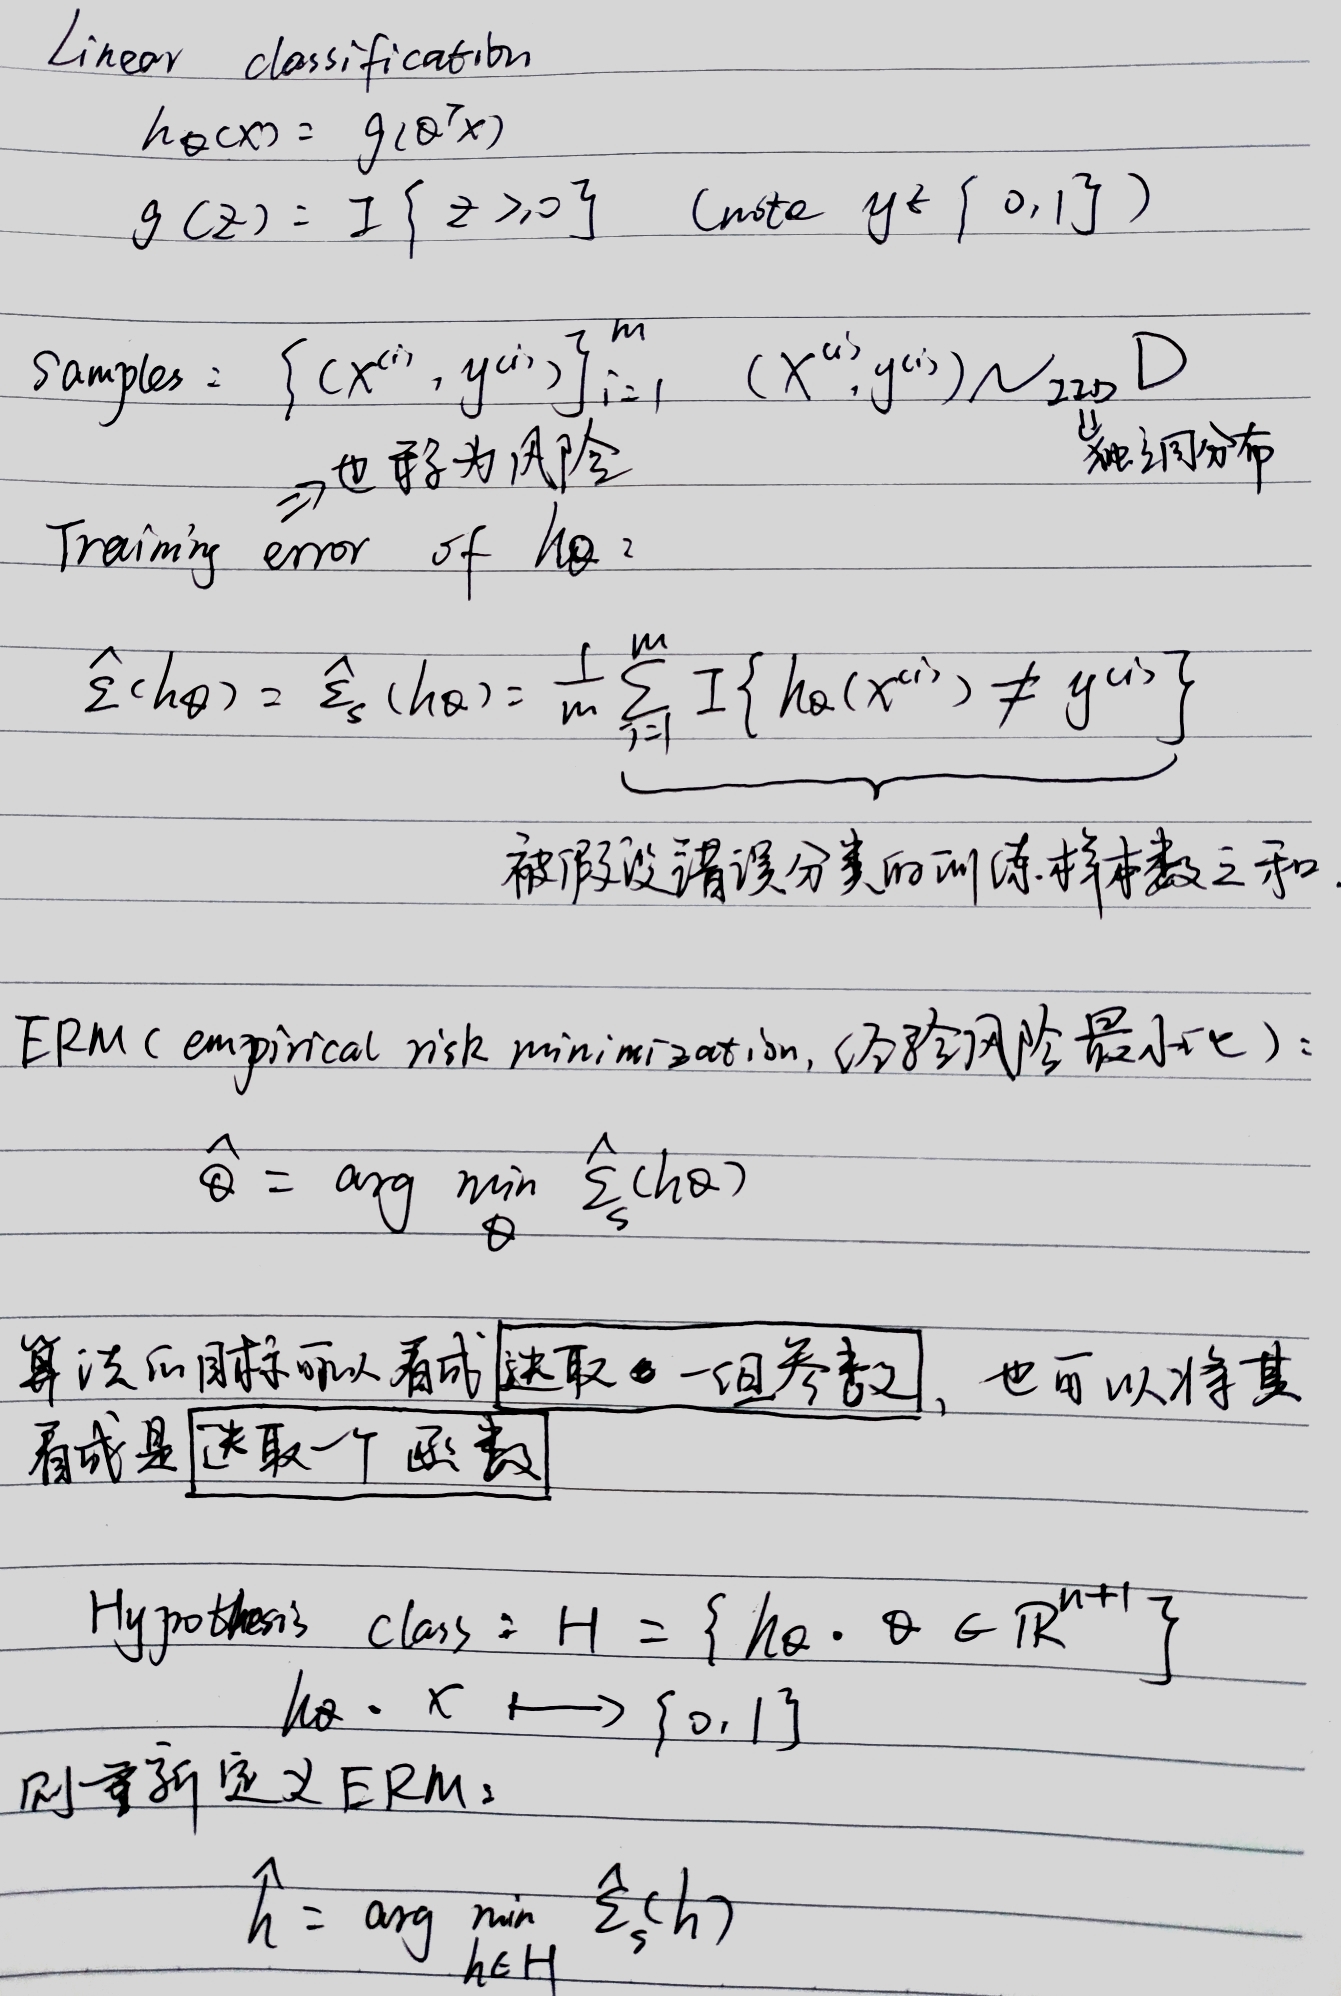 Linear classification
hθ(x) = g(θᵀx)
g(z) = I{z ≥ 0} (note y ∈ {0,1})
Samples: {(x⁽ⁱ⁾, y⁽ⁱ⁾)}ᵢ₌₁ᵐ (x⁽ⁱ⁾, y⁽ⁱ⁾) ~ IID D
⇒ 也称为风险 ⇓ 独立同分布
Training error of hθ:
ε̂(hθ) = ε̂ₛ(hθ) = 1/m ∑ᵢ₌₁ᵐ I{hθ(x⁽ⁱ⁾) ≠ y⁽ⁱ⁾}
被假设错误分类的训练样本数之和.
ERM( empirical risk minimization, 经验风险最小化):
θ̂ = arg min_θ ε̂ₛ(hθ)
算法的目标可以看成选取一组参数, 也可以将其
看成是选取一个函数
Hypothesis class: H = {hθ. θ ∈ ℝⁿ⁺¹}
hθ. x ⟼ {0,1}
则重新定义ERM:
ĥ = arg min_{h∈H} ε̂ₛ(h)